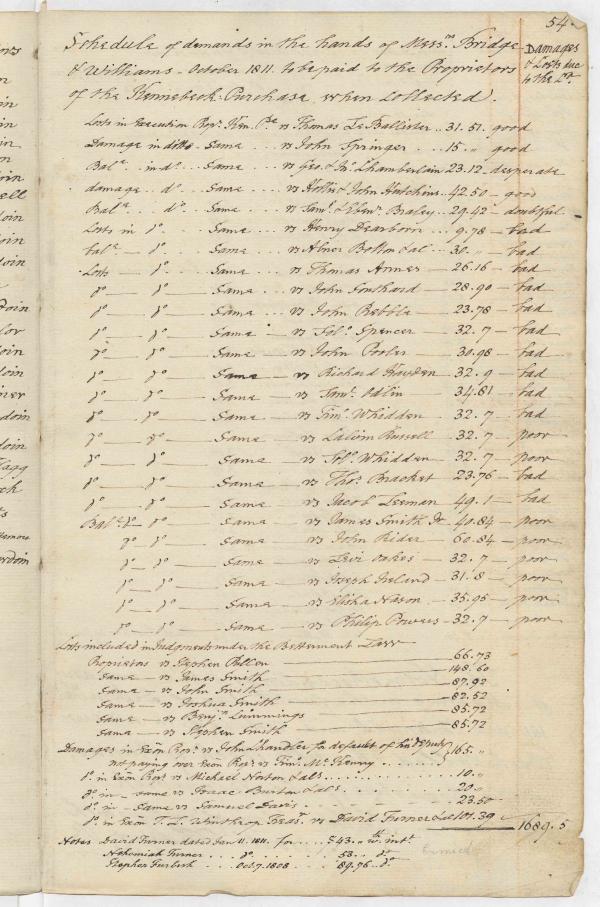 54
Schedule of demands in the hands of Mess.rs Bridge
& Williams - October 1811. to be paid to the Proprietors
of the Kennebeck Purchase when Collected.
Damages
& Costs due
to the
Costs in Execution Prop.rs Ken. P.e vs Thomas Le Ballister .. 31. 51. good
Damage in ditto Same .... vs John Springer .... 15. " good
Bal.e .. in d.o .. Same .... vs Geo. & Jn.o Chamberlain 23.12 - desperate
damage .. d.o .... Same .... vs Hollis & John Hutchins .. 42.50 - good
Bal.e .... d.o .. Same .... vs Sam.l & Eben.r Braley .. 29.42 - doubtful
Costs in d.o .. Same .... vs Henry Dearborn .... 9.78 - bad
bal.e — d.o .. Same .... vs Abner Bolton & al .. 30. " - bad
Costs — d.o .... Same .... vs Thomas Armes — 26.16 — bad
d.o — d.o — Same — vs John Southard — 28.90 — bad
d.o — d.o — Same — vs John Pebble — 23.78 — bad
d.o — d.o — Same — vs Sol.o Spencer — 32.7 — bad
d.o — d.o — Same — vs John Pooler — 30.98 — bad
d.o — d.o — Same — vs Richard Hayden — 32.9 — bad
d.o — d.o — Same — vs Sam.l Odlin — 34.81 — bad
d.o — d.o — Same — vs Tim.o Whidden — 32.7 — bad
d.o — d.o — Same — vs Calvin Russell — 32.7 — poor
d.o — d.o — Same — vs Whidden — 32.7 — poor
d.o — d.o — Same — vs Tho.s Bracket — 23.76 — bad
d.o — d.o — Same — vs Jacob Leeman — 49.1 — bad
Bal.e d.o — d.o — Same — vs James Smith Jr — 40.84 — poor
d.o — d.o — Same — vs John Rider — 60.84 — poor
d.o — d.o — Same — vs Levi Oakes — 32.7 — poor
d.o — d.o — Same — vs Joseph Ireland — 31.8 — poor
d.o — d.o — Same — vs Elisha Nason — 35.95 — poor
d.o — d.o — Same — vs Philip Bowers — 32.7 — poor
Costs included in Judgments under the Betterment Law
Proprietors vs Stephen Pullen — 66.73
Same — vs James Smith — 148.60
Same — vs John Smith — 87.92
Same — vs Joshua Smith — 82.52
Same — vs Benj.n Cummings — 85.72
Same — vs Stephen Smith — 85.72
Damages in Exōn Prop.rs vs John Chandler for default of his deputy } 165. "
not paying over Exōn Prop.rs vs Tim.o McKenny ...... }
d.o in Exōn Prop.rs vs Michael Norton & als .......... 10. "
d.o in - same vs Isaac Burton & als .......... 20. "
d.o in - Same vs Samuel Davis ............ 23.50
d.o in Exōn T. L. Winthrop Treas.r vs David Turner & al 101.39
1689.5
Notes David Turner dated Jan 11. 1811. for .... $43. .. w.th int.t
Nehemiah Turner .... d.o .... 53. .. d.o
Stephen Furbish .... Oct. 7. 1808 .... 89.96 .. d.o